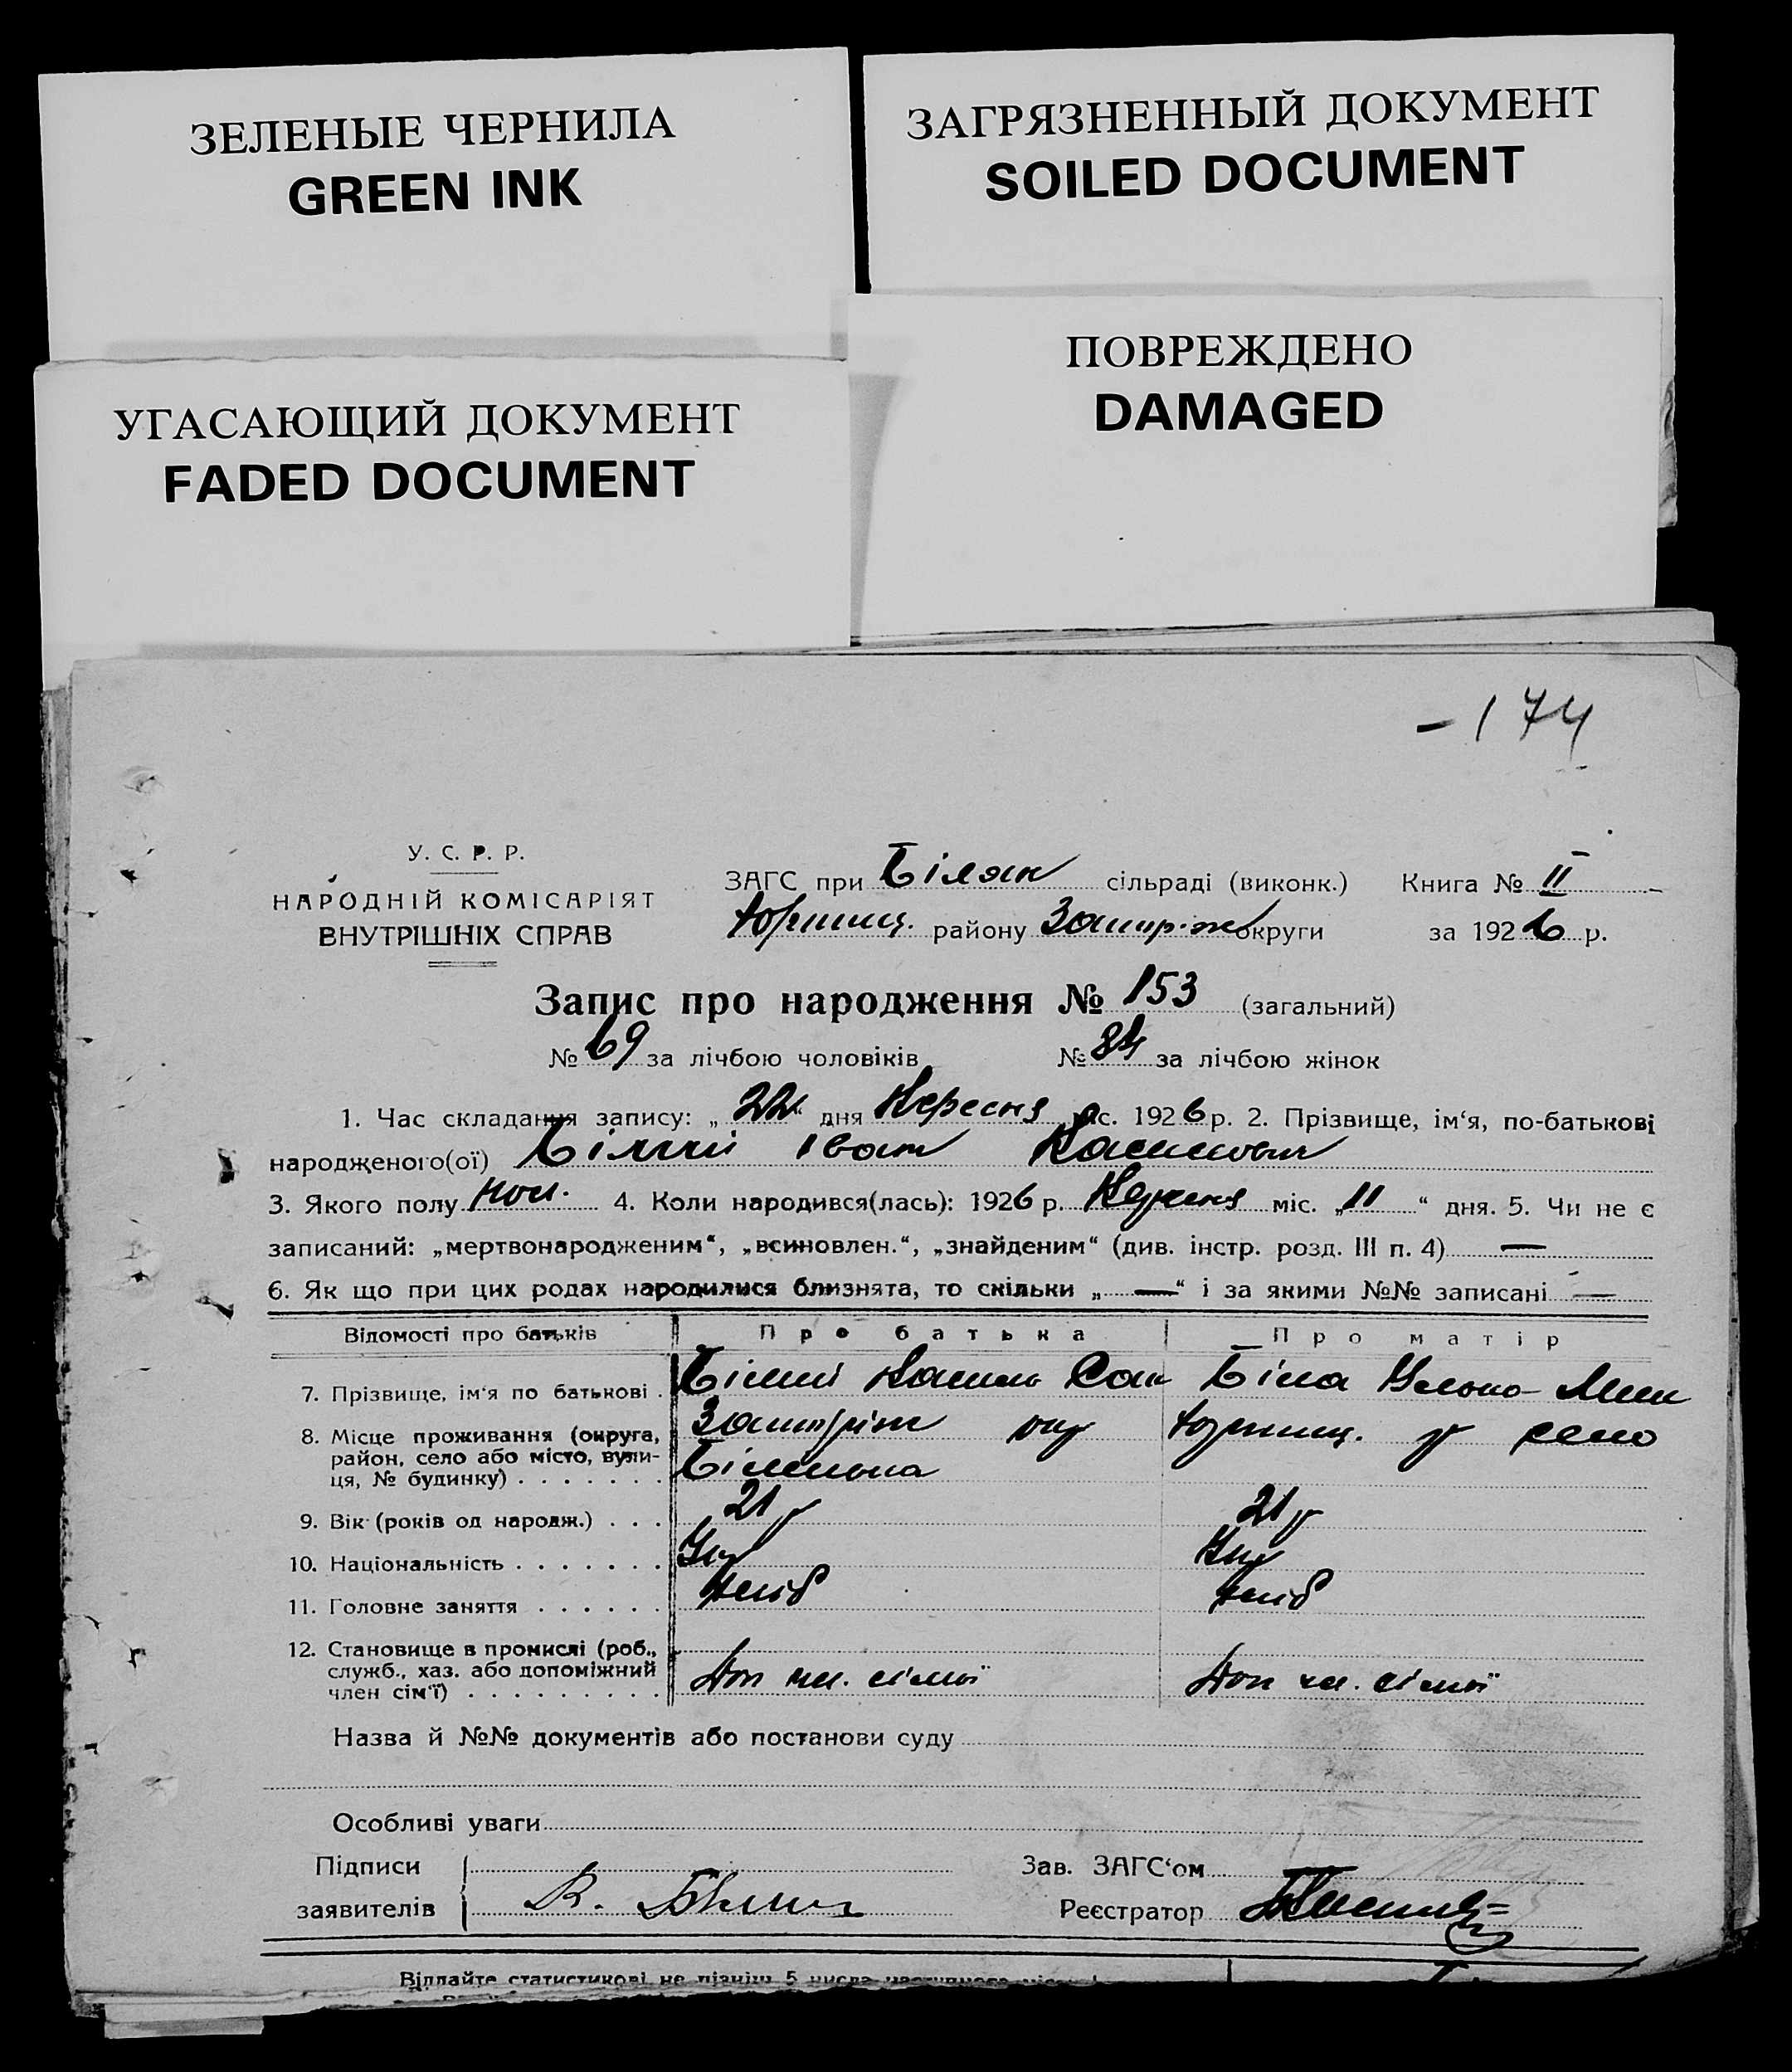 ЗЕЛЕНЫЕ ЧЕРНИЛА
GREEN INK
ЗАГРЯЗНЕННЫЙ ДОКУМЕНТ
SOILED DOCUMENT
УГАСАЮЩИЙ ДОКУМЕНТ
FADED DOCUMENT
ПОВРЕЖДЕНО
DAMAGED
174
У. С. Р. Р.
НАРОДНІЙ КОМІСАРІЯТ
ВНУТРІШНІХ СПРАВ
ЗАГС при сільраді (виконк.) Книга № II
району округи за 1926 р.
Запис про народження № 153 (загальний)
№ 69 за лічбою чоловіків № 84 за лічбою жінок
1. Час складання запису: „22“ дня Вересня міс. 1926 р. 2. Прізвище, ім‘я, по-батькові
народженого(ої) Білий Іван
3. Якого полу чол. 4. Коли народився(лась): 1926 р. міс. „11“ дня. 5. Чи не є
записаний: „мертвонародженим“, „всиновлен.“, „знайденим“ (див. інстр. розд. III п. 4) —
6. Як що при цих родах народилися близнята, то скільки „—“ і за якими №№ записані —
Відомості про батьків Про батька Про матір
7. Прізвище, ім‘я по батькові . Білий Біла
8. Місце проживання (округа, район, село або місто, вулиця, № будинку) . . . . . . . окр село
9. Вік (років од народж.) . . . 21 р 21 р
10. Національність . . . . . . . Укр Укр
11. Головне заняття . . . . . . хліб хліб
12. Становище в промислі (роб., служб., хаз. або допоміжний член сім‘ї) . . . . . . . . . Доп чл. сімої Доп чл. сімої
Назва й №№ документів або постанови суду
Особливі уваги
Підписи заявителів
Зав. ЗАГС‘ом
Реєстратор
Віддайте статистикові не пізніш 5 числа наступного